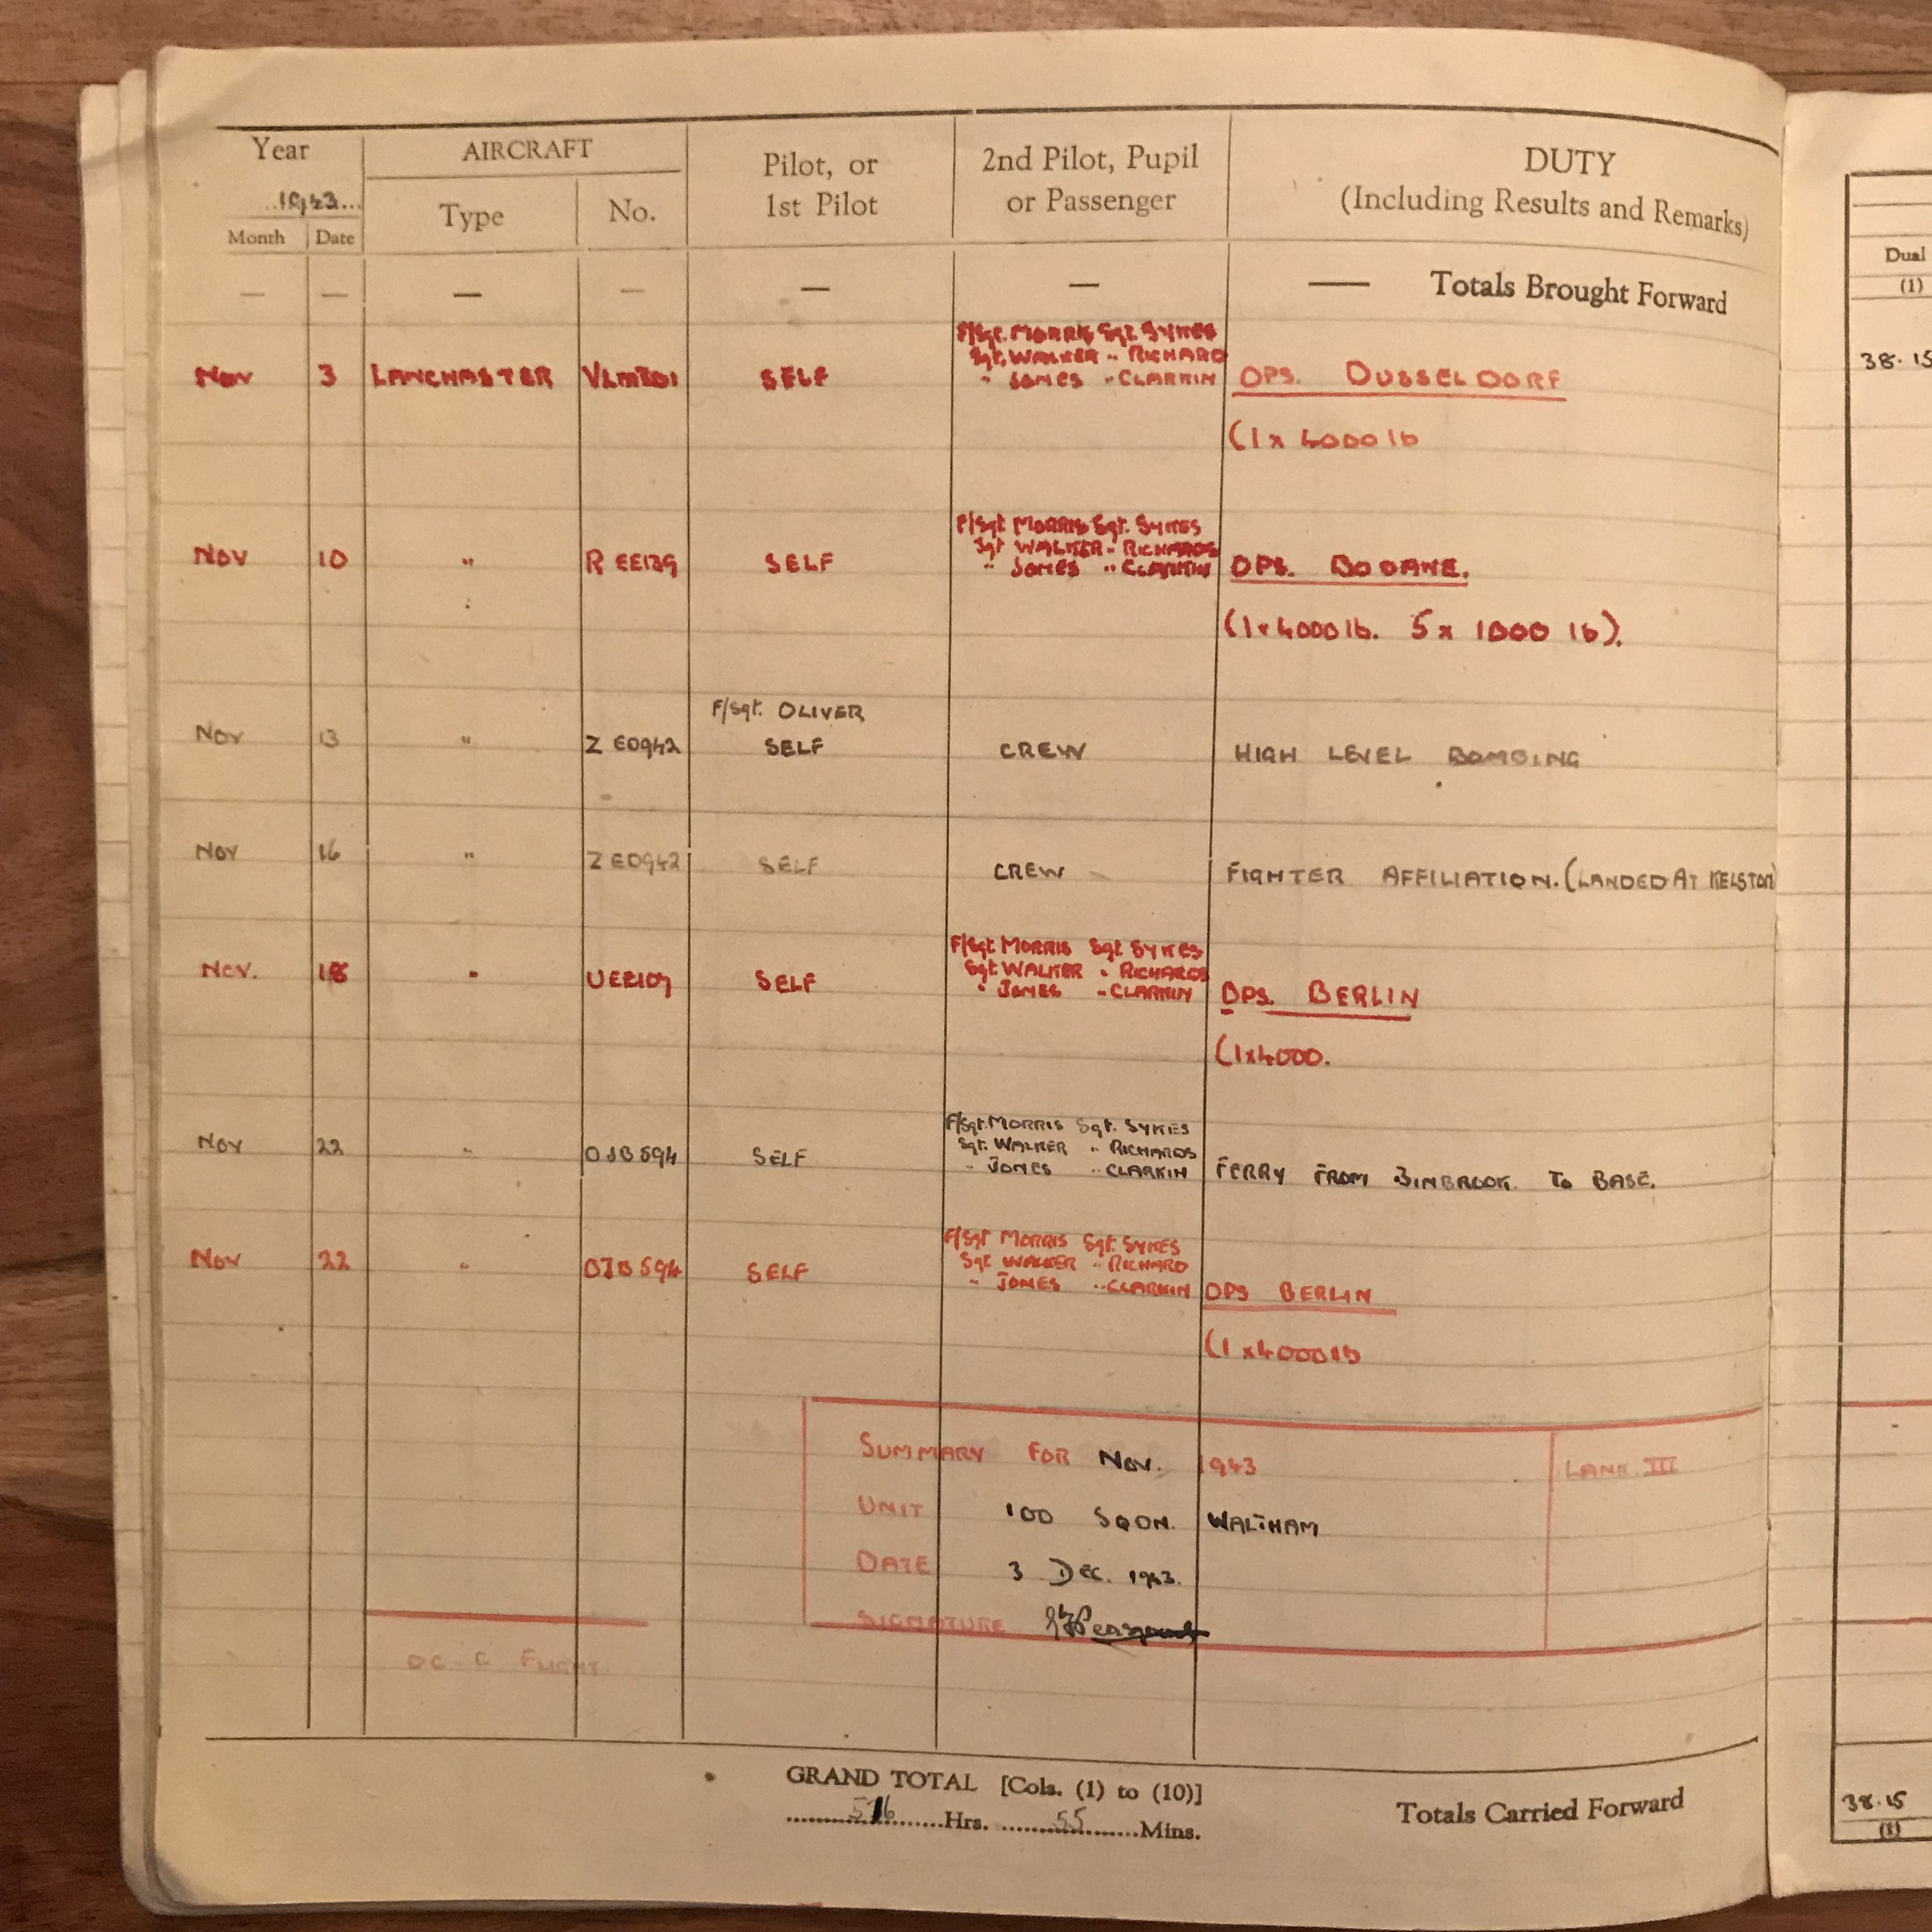 Year AIRCRAFT Pilot, or 2nd Pilot, Pupil DUTY
1943 Type No. 1st Pilot or Passenger (Including Results and Remarks)
Month Date Dual
(1)
— — — — — — — Totals Brought Forward
F/Sgt. MORRIS Sgt. SYKES
Sgt. WALKER " RICHARD 38.15
Nov 3 LANCHASTER SELF " JONES " CLARKIN OPS. DUSSELDORF
(1 x 4000 lb
F/Sgt MORRIS Sgt. SYKES
Sgt WALKER " RICHARDS
NOV 10 " R EE139 SELF " JONES " CLARKIN OPS.
(1x4000 lb. 5 x 1000 lb).
F/Sgt. OLIVER
Nov 13 " Z ED942 SELF CREW HIGH LEVEL BOMBING
Nov 16 " Z ED942 SELF CREW FIGHTER AFFILIATION. (LANDED AT KELSTON)
F/Sgt MORRIS Sgt SYKES
Sgt WALKER " RICHARDS
Nov. 18 " UEE109 SELF " JONES " CLARKIN OPS. BERLIN
(1x4000.
F/Sgt. MORRIS Sgt. SYKES
Sgt. WALKER " RICHARDS
Nov 22 " OJB594 SELF " JONES " CLARKIN FERRY FROM BINBROOK. TO BASE.
F/Sgt MORRIS Sgt. SYKES
Sgt WALKER " RICHARD
Nov 22 " OJB594 SELF " JONES " CLARKIN OPS BERLIN
(1 x4000lb
SUMMARY FOR NOV. 1943 LANC III
UNIT 100 SQDN. WALTHAM
DATE 3 DEC. 1943.
SIGNATURE
OC. C FLIGHT.
GRAND TOTAL [Cols. (1) to (10)] Totals Carried Forward 38.15
Hrs. 55 Mins. (1)